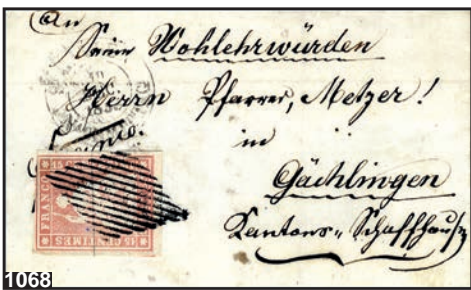 An
Seine Wohlehrwürden
Herrn Pfarrer, Metzer!
in
franco.
Gächlingen
Kantons Schaffhausen
FRANCO
15 CENTIMES
1068